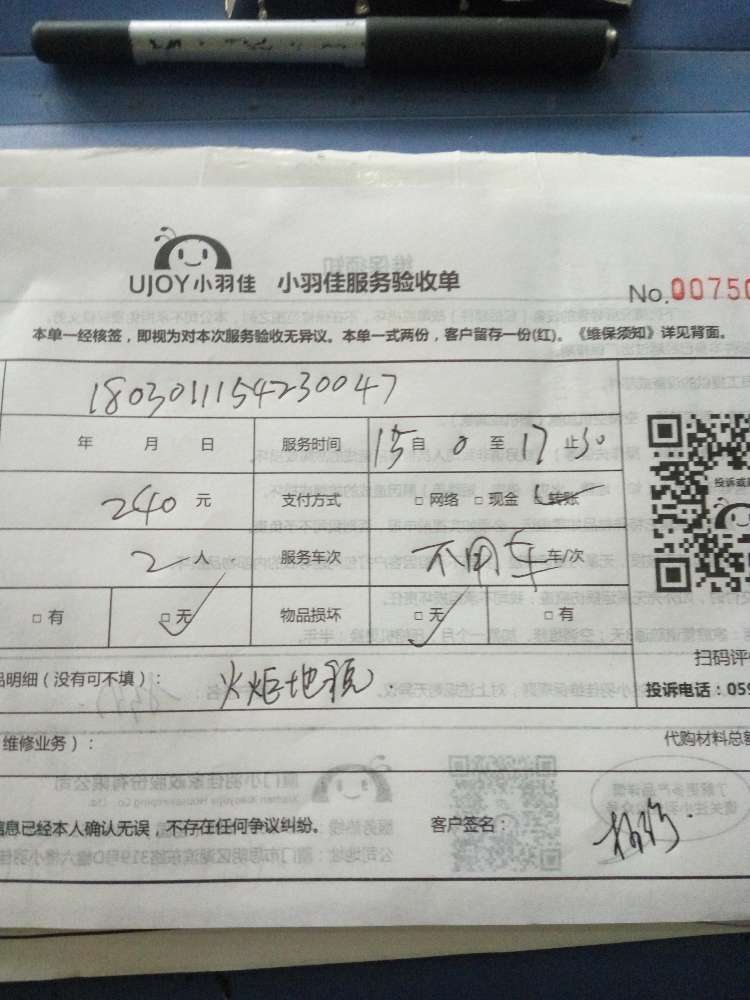 UJOY小羽佳 小羽佳服务验收单
No.00750
本单一经核签，即视为对本次服务验收无异议。本单一式两份，客户留存一份(红)。《维保须知》详见背面。
1803011154230047
年 月 日 服务时间 15自 0 至 17止30
240元 支付方式 □网络 □现金 □转账
2人 服务车次 不用车 车/次
□有 □无 物品损坏 □无 □有
投诉或
扫码评
品明细（没有可不填）： 火炬地税
投诉电话：059
维修业务）： 代购材料总额
信息已经本人确认无误，不存在任何争议纠纷。 客户签名：